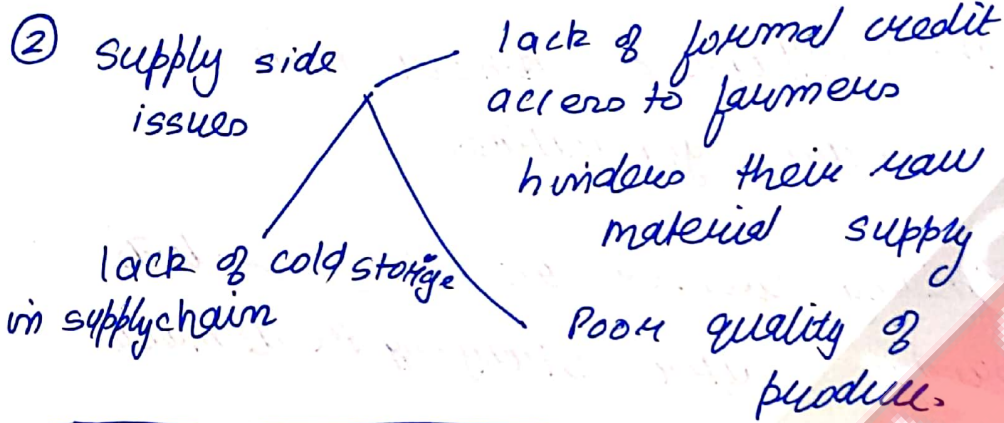 ② Supply side
issues
lack of formal credit
access to farmers
hinders their raw
material supply
lack of cold storage
in supplychain
Poor quality of
produce.